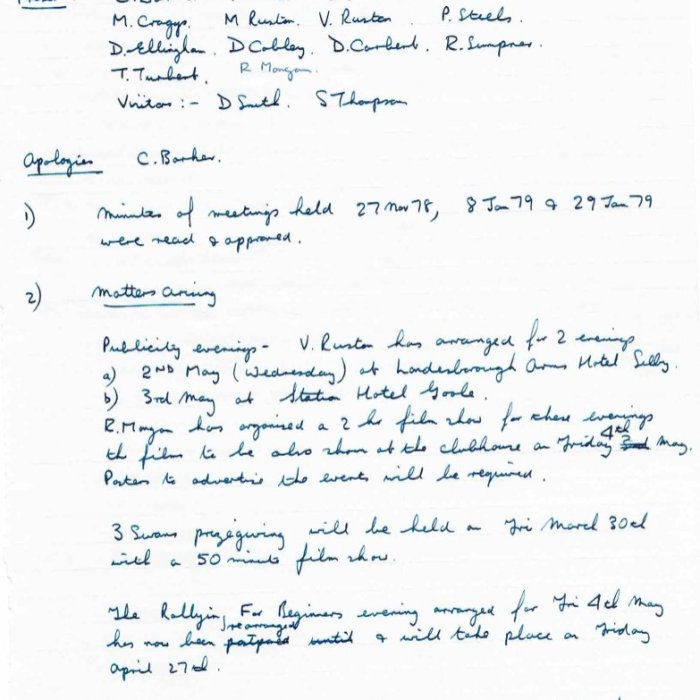 M. Craggs. M Ruston. V. Ruston. P. Steels.
D. Ellingham. D Cobley. D. Corbert. R. Sumpner.
T. Turnbert. R Morgan.
Visitors :- D Smith. S Thompson
Apologies C. Barker.
1) Minutes of meetings held 27 Nov 78, 8 Jan 79 & 29 Jan 79
were read & approved.
2) Matters arising
Publicity evenings - V. Ruston has arranged for 2 evenings
a) 2ND May (Wednesday) at Londesborough Arms Hotel Selby.
b) 3rd May at Station Hotel Goole.
R. Morgan has organised a 2 hr film show for these evenings
the film to be also shown at the clubhouse on Friday 3rd 4th May.
Posters to advertise the events will be required.
3 Swans prizegiving will be held on Fri March 30th
with a 50 minute film show.
The Rallying For Beginners evening arranged for Fri 4th May
has now been postponed until rearranged & will take place on Friday
April 27th.